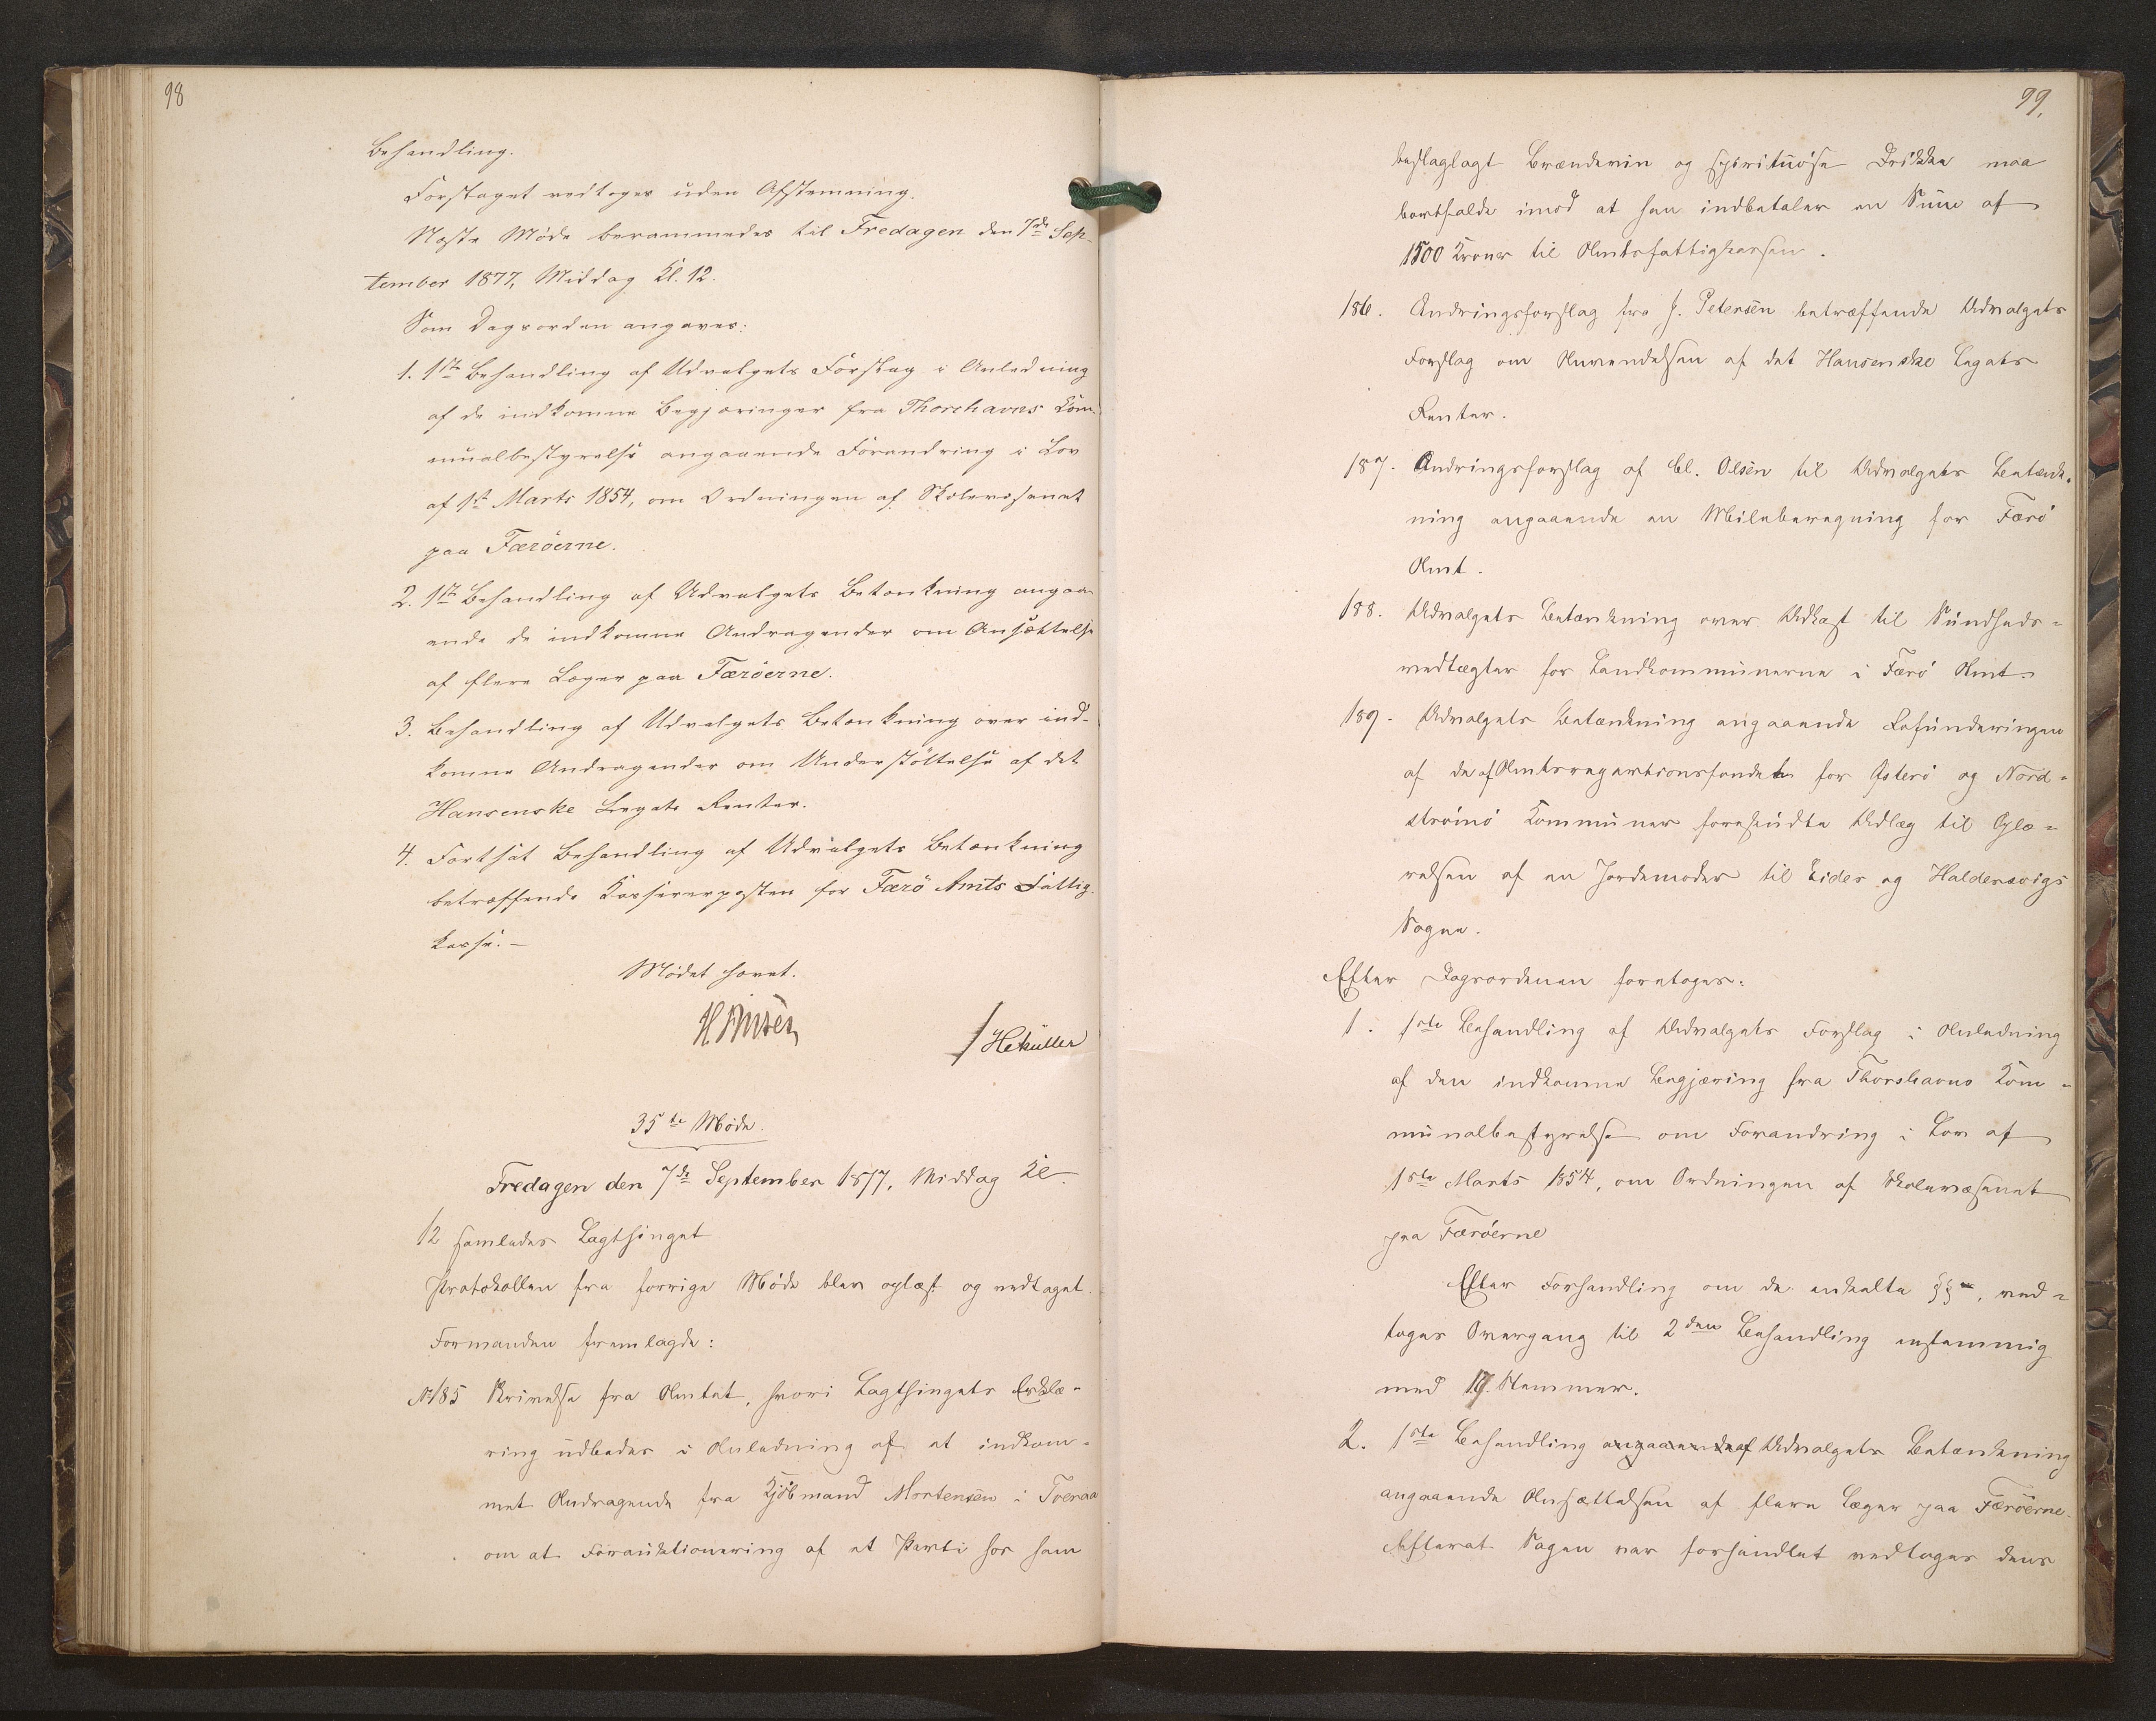 98
Behandling.
Forslaget vedtoges uden Afstemning.
Næste Møde berammedes til Fredagen den 7de Sep-
tember 1877, Middag Kl. 12.
Som Dagsorden angaves:
1. 1ste Behandling af Udvalgets Forslag i Anledning
af de indkomne Begjæringer fra Thorshavns Kom-
munalbestyrelse angaaende Forandring i Lov
af 1st Marts 1854, om Ordningen af Skolevæsenet
paa Færöerne.
2. 1ste Behandling af Udvalgets Betænkning angaa-
ende de indkomne Andragender om Ansættelse
af flere Læger paa Færöerne.
3. Behandling af Udvalgets Betænkning over ind-
komne Andragender om Understöttelse af det
Hansenske Legats Renter.
4. Fortsat Behandling af Udvalgets Betænkning
betræffende Kassererposten for Færö Amts Fattig-
kasse. —
Mödet hævet.
35te Møde.
Fredagen den 7de September 1877, Middag Kl.
12 samledes Lagthinget
Protokollen fra forrige Møde blev oplæst og vedtaget.
Formanden fremlagde:
No 185 Skrivelse fra Amtet, hvori Lagthingets Erklæ-
ring udbedes i Anledning af et indkom-
met Andragende fra Kjöbmand Mortensen i Tveraa
om at Forauktionering af et Parti hos ham
99.
beslaglagt Brændevin og spirituöse Drikke maa
bortfalde imod at han indbetaler en Sum af
1500 Kroner til Amtsfattigkassen.
186. Ændringsforslag fra J. Petersen betræffende Udvalgets
Forslag om Anvendelsen af det Hansenske Legats
Renter.
187. Ændringsforslag af Cl. Olsen til Udvalgets Betænk-
ning angaaende en Mileberegning for Færö
Amt.
188. Udvalgets Betænkning over Udkast til Sundheds-
vedtægter for Landkommunerne i Færö Amt
189. Udvalgets Betænkning angaaende Refunderingen
af de af Amtsrepartionsfondet for Österö og Nord-
strömö Kommuner forskudte Udlæg til Oplæ-
relsen af en Jordemoder til Eides og Haldersvigs
Sogne.
Efter Dagsordenen foretoges:
1. 1ste Behandling af Udvalgets Forslag i Anledning
af den indkomne Begjæring fra Thorshavns Kom-
munalbestyrelse om Forandring i Lov af
1ste Marts 1854, om Ordningen af Skolevæsenet
paa Færöerne
Efter Forhandling om de enkelte §§, ved-
toges Overgang til 2den Behandling enstemmig
med 17. Stemmer.
2. 1ste Behandling angaaende af Udvalgets Betænkning
angaaende Ansættelsen af flere Læger paa Færöerne.
Efterat Sagen var forhandlet vedtoges dens